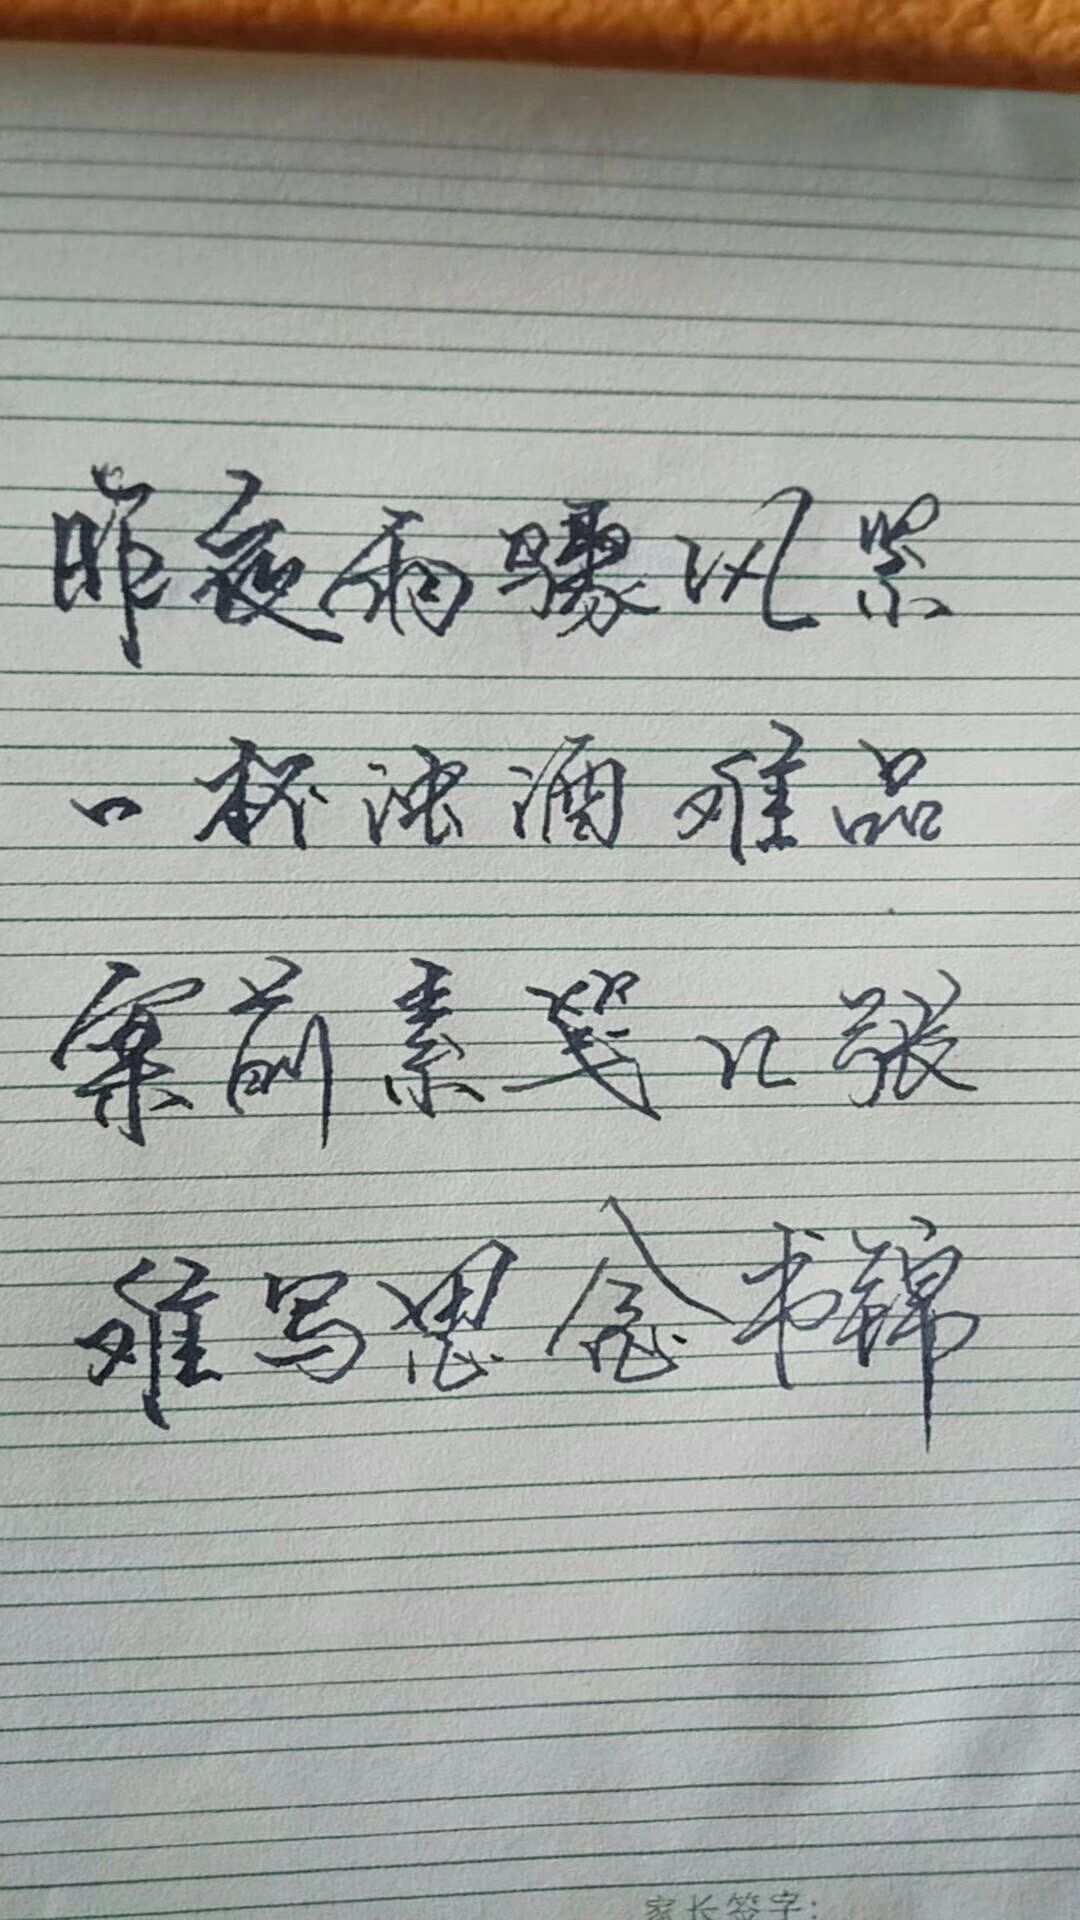 昨夜雨骤风紧
口杯浊酒难品
案前素笺几张
难写思念书锦
家长签字：